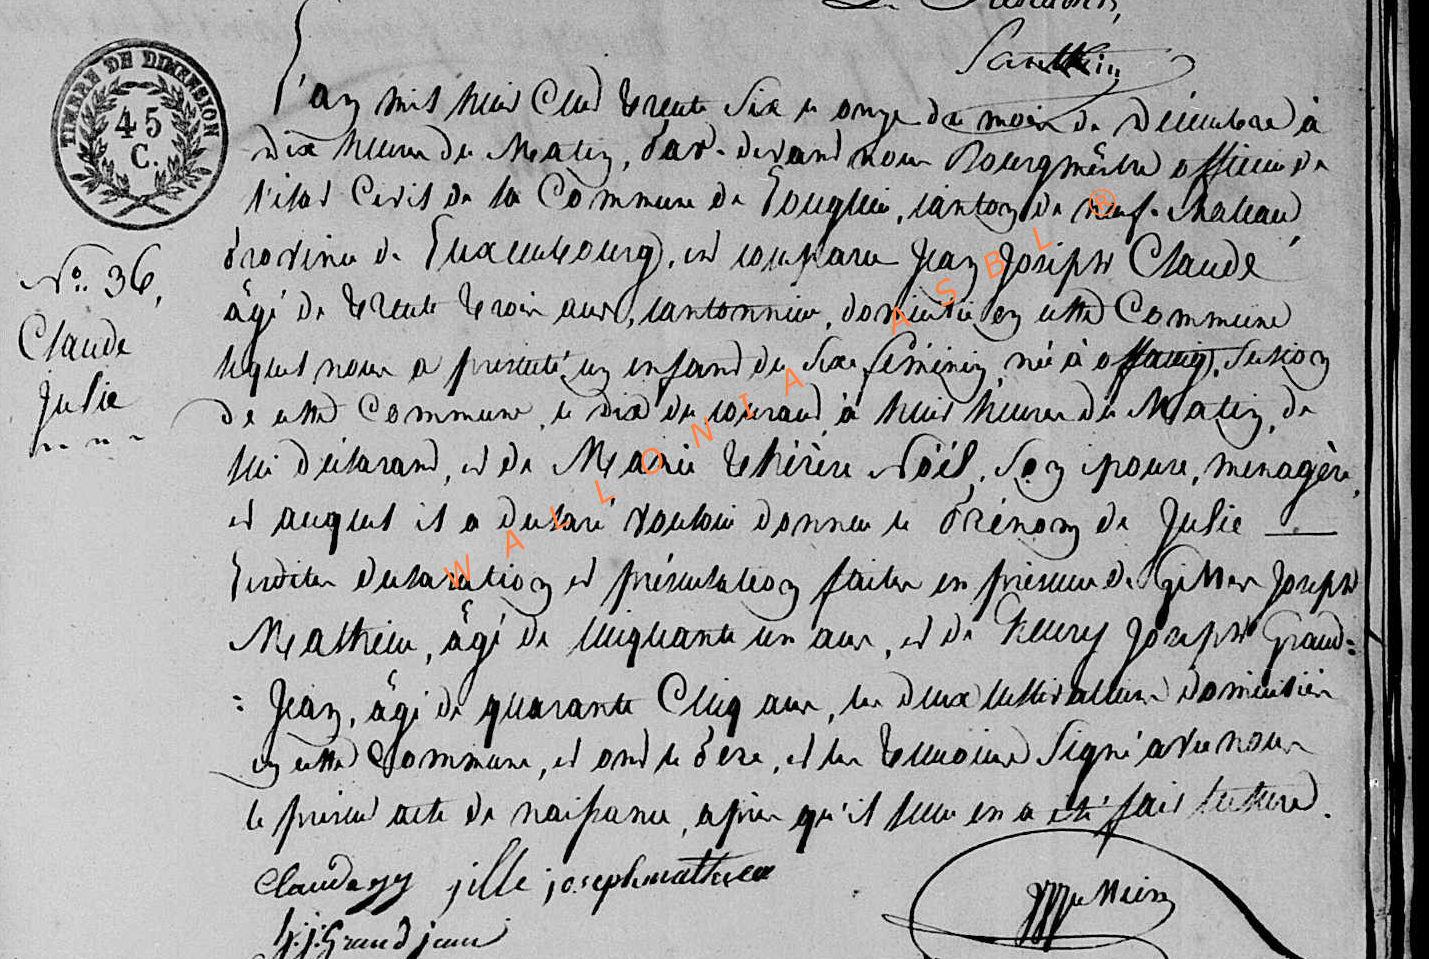 TIMBRE DE DIMENSION
45
C.
L'an mil huit Cent trente Six le onze du mois de Décembre à
dix heures du Matin, par-devant nous Bourgmestre officier de
l'état Civil de la Commune de Lougliei, canton de neuf-chateau,
province de Luxembourg, est comparu Jean Joseph Claude
N.o 36,
âgé de trente trois ans, cantonnier, domicilié en cette Commune
Claude
lequel nous a présenté un enfant du Sexe féminin, née à offaing, Section
Julie
de cette Commune, le dix du courant, à huit heures du Matin, de
lui déclarant, et de Marie thérèse Noël, Son épouse, menagère,
et auquel il a declaré vouloir donner le prénom de Julie
Lesdites declaration et présentation faites en présence de Gilles Joseph
Mathieu, âgé de cinquante un ans, et de henry Joseph Grand=
=Jean, âgé de quarante Cinq ans, les deux cultivateurs domiciliés
en cette Commune, et ont le père, et les temoins Signé avec nous
le présent acte de naissance, après qu'il leur en a été fait lecture.
Claude jj jille joseph mathieu
h.j. Grand jean
WALLONIA ASBL ®